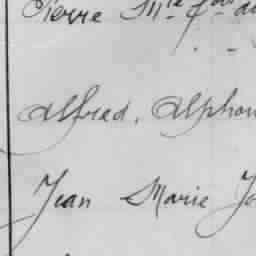 Pierre Mie
Alfred, Alphon
Jean Marie Jo